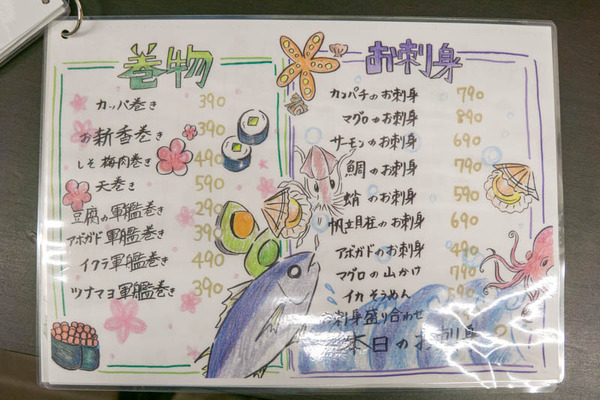 巻物
カッパ巻き 390
お新香巻き 390
しそ梅肉巻き 490
天巻き 590
豆腐の軍艦巻き 290
アボガド軍艦巻き 390
イクラ軍艦巻き 490
ツナマヨ軍艦巻き 390
お刺身
カンパチのお刺身 790
マグロのお刺身 890
サーモンのお刺身 690
鯛のお刺身 790
蛸のお刺身 590
帆立貝柱のお刺身 690
アボガドのお刺身 490
マグロの山かけ 790
イカそうめん
お刺身盛り合わせ
本日のお刺身